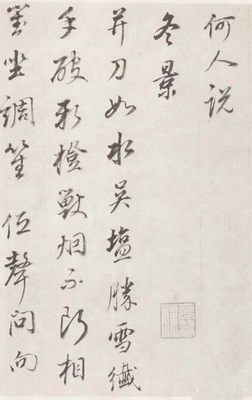 何人説
冬景
并刀如水吳塩勝雪纖
手破新橙獸烟不断相
對坐調笙低聲問向